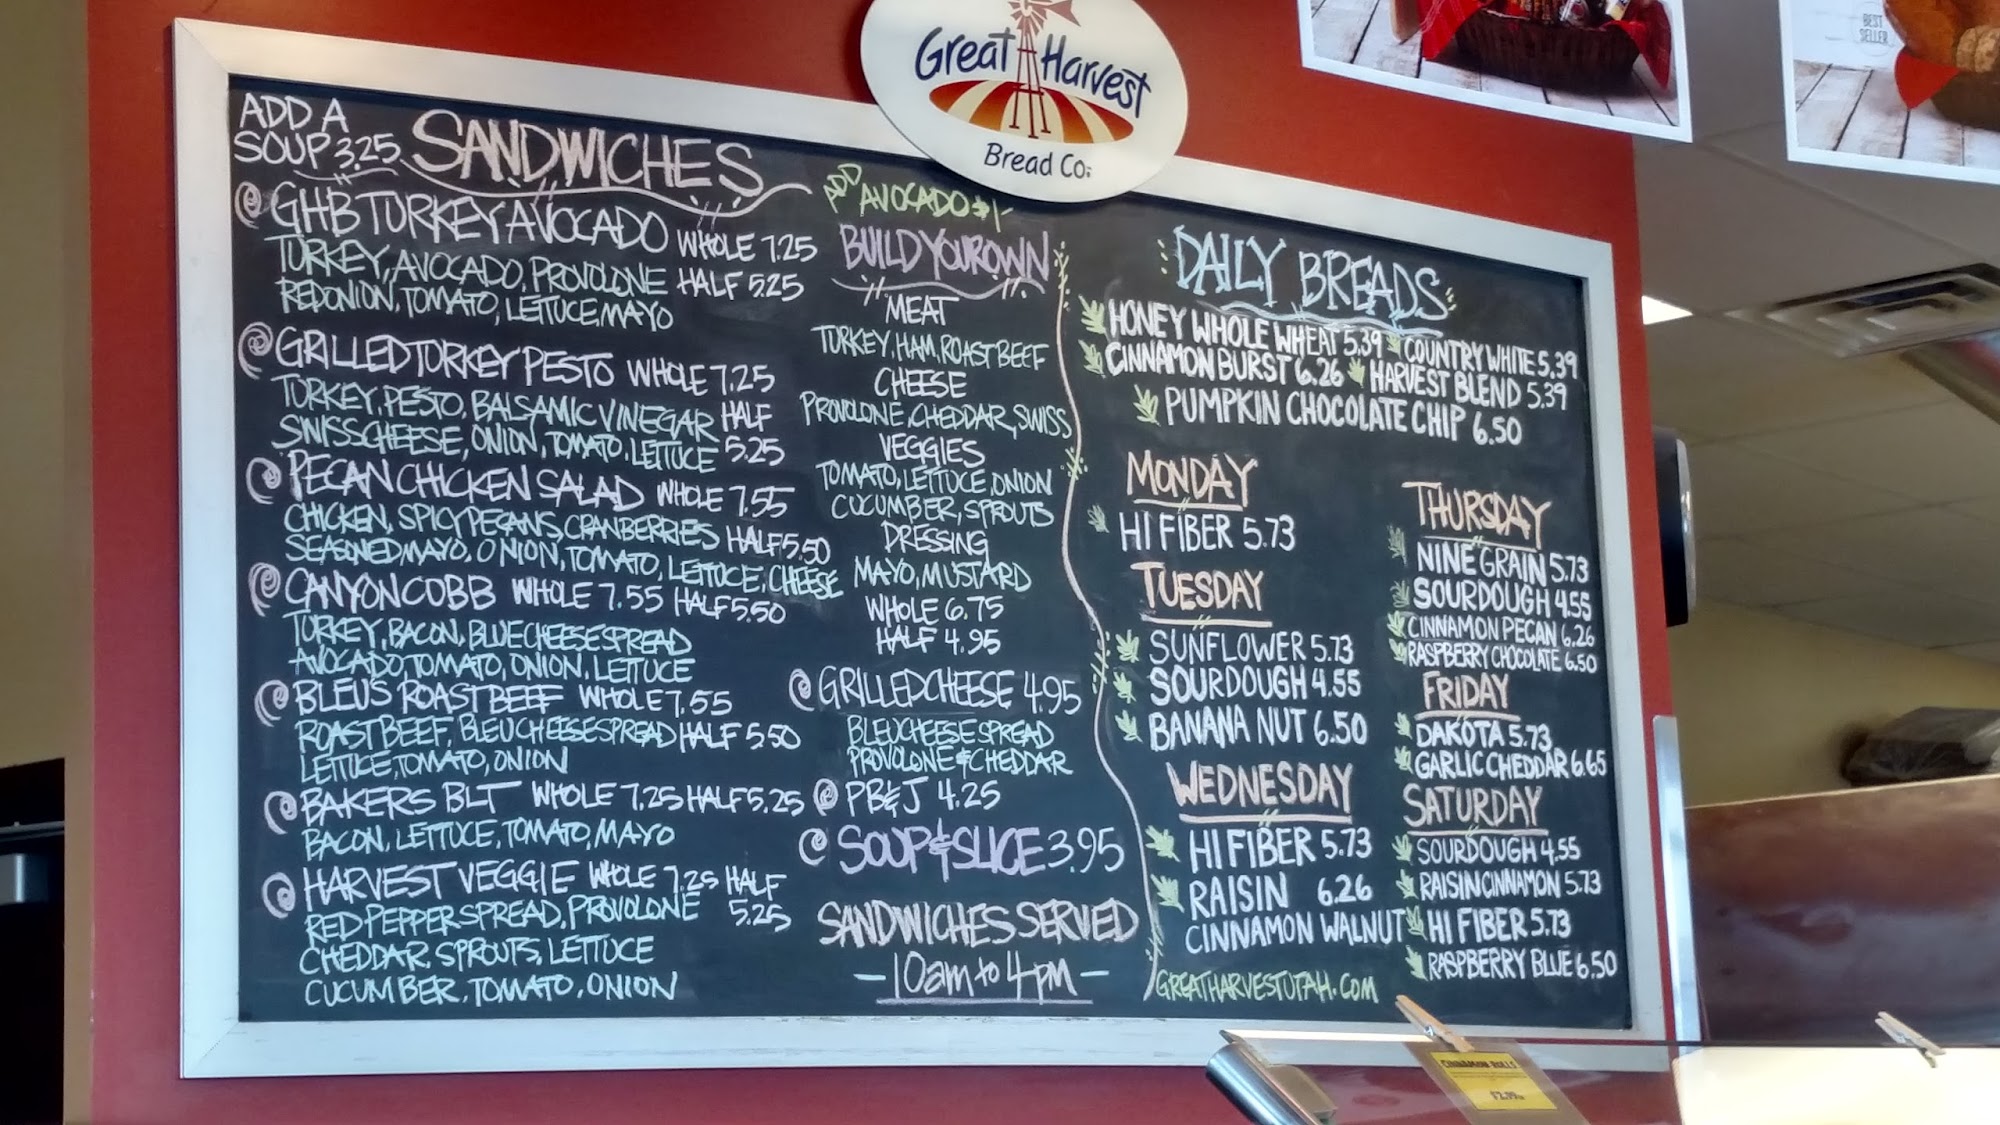 Great Harvest
Bread Co.
BEST
SELLER
ADD A
SOUP 3.25
SANDWICHES
GHB TURKEY AVOCADO WHOLE 7.25
TURKEY, AVOCADO, PROVOLONE HALF 5.25
RED ONION, TOMATO, LETTUCE, MAYO
GRILLED TURKEY PESTO WHOLE 7.25
TURKEY, PESTO, BALSAMIC VINEGAR HALF
SWISS CHEESE, ONION, TOMATO, LETTUCE 5.25
PECAN CHICKEN SALAD WHOLE 7.55
CHICKEN, SPICY PECANS, CRANBERRIES HALF 5.50
SEASONED MAYO, ONION, TOMATO, LETTUCE, CHEESE
CANYON COBB WHOLE 7.55 HALF 5.50
TURKEY, BACON, BLUE CHEESE SPREAD
AVOCADO, TOMATO, ONION, LETTUCE
BLEU'S ROAST BEEF WHOLE 7.55
ROAST BEEF, BLEU CHEESE SPREAD HALF 5.50
LETTUCE, TOMATO, ONION
BAKERS BLT WHOLE 7.25 HALF 5.25
BACON, LETTUCE, TOMATO, MAYO
HARVEST VEGGIE WHOLE 7.25 HALF
RED PEPPER SPREAD, PROVOLONE 5.25
CHEDDAR, SPROUTS, LETTUCE
CUCUMBER, TOMATO, ONION
ADD AVOCADO $1-
BUILD YOUR OWN
MEAT
TURKEY, HAM, ROAST BEEF
CHEESE
PROVOLONE, CHEDDAR, SWISS
VEGGIES
TOMATO, LETTUCE, ONION
CUCUMBER, SPROUTS
DRESSING
MAYO, MUSTARD
WHOLE 6.75
HALF 4.95
GRILLED CHEESE 4.95
BLEU CHEESE SPREAD
PROVOLONE & CHEDDAR
PB&J 4.25
SOUP & SLICE 3.95
SANDWICHES SERVED
- 10am to 4pm -
DAILY BREADS
HONEY WHOLE WHEAT 5.39 COUNTRY WHITE 5.39
CINNAMON BURST 6.26 HARVEST BLEND 5.39
PUMPKIN CHOCOLATE CHIP 6.50
MONDAY
HI FIBER 5.73
TUESDAY
SUNFLOWER 5.73
SOURDOUGH 4.55
BANANA NUT 6.50
WEDNESDAY
HI FIBER 5.73
RAISIN 6.26
CINNAMON WALNUT
GREATHARVESTUTAH.COM
THURSDAY
NINE GRAIN 5.73
SOURDOUGH 4.55
CINNAMON PECAN 6.26
RASPBERRY CHOCOLATE 6.50
FRIDAY
DAKOTA 5.73
GARLIC CHEDDAR 6.65
SATURDAY
SOURDOUGH 4.55
RAISIN CINNAMON 5.73
HI FIBER 5.73
RASPBERRY BLUE 6.50
CINNAMON ROLLS